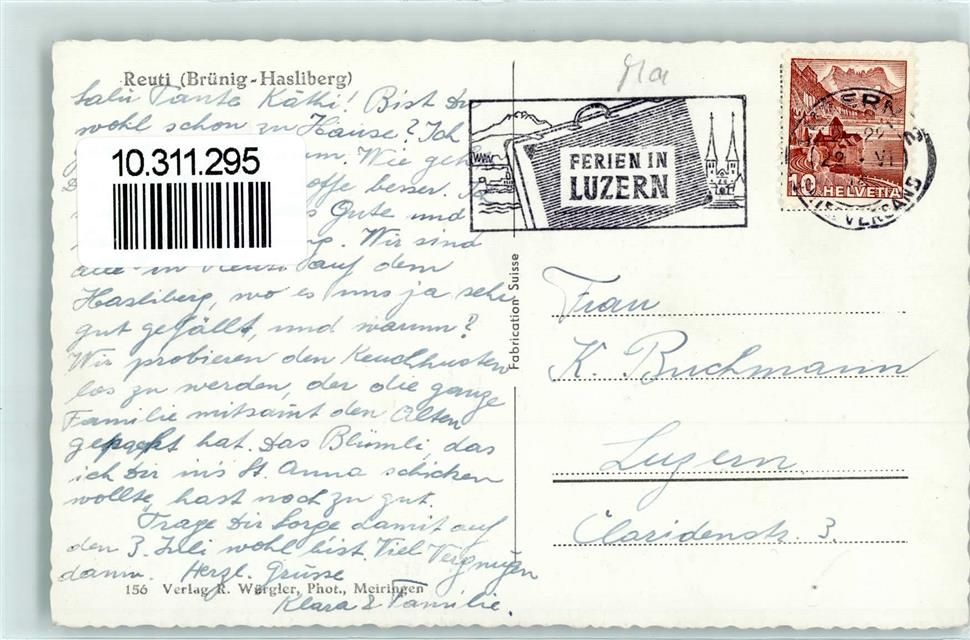 Reuti (Brünig-Hasliberg)
Salü Tante Käthi! Bist Du
wohl schon zu Hause? Ich
Wie geht
hoffe besser.
Gute und
Wir sind
alle in Reuti auf dem
Hasliberg, wo es uns ja sehr
gut gefällt, und warum?
Wir probieren den Keuchhusten
los zu werden, der die ganze
Familie mitsamt den Alten
gepackt hat. Das Blümli, das
ich Dir in's St. Anna schicken
wollte, hast noch zu gut.
Trage Dir Sorge damit auf
den 3. Juli wohl bist. Viel Vergnügen
dann. Herzl. Grüsse
Klara & Familie.
156 Verlag R. Würgler, Phot., Meiringen
10.311.295
Fabrication Suisse
FERIEN IN
LUZERN
10 HELVETIA
VERSAND
Frau
K. Buchmann
Luzern
Claridenstr. 3